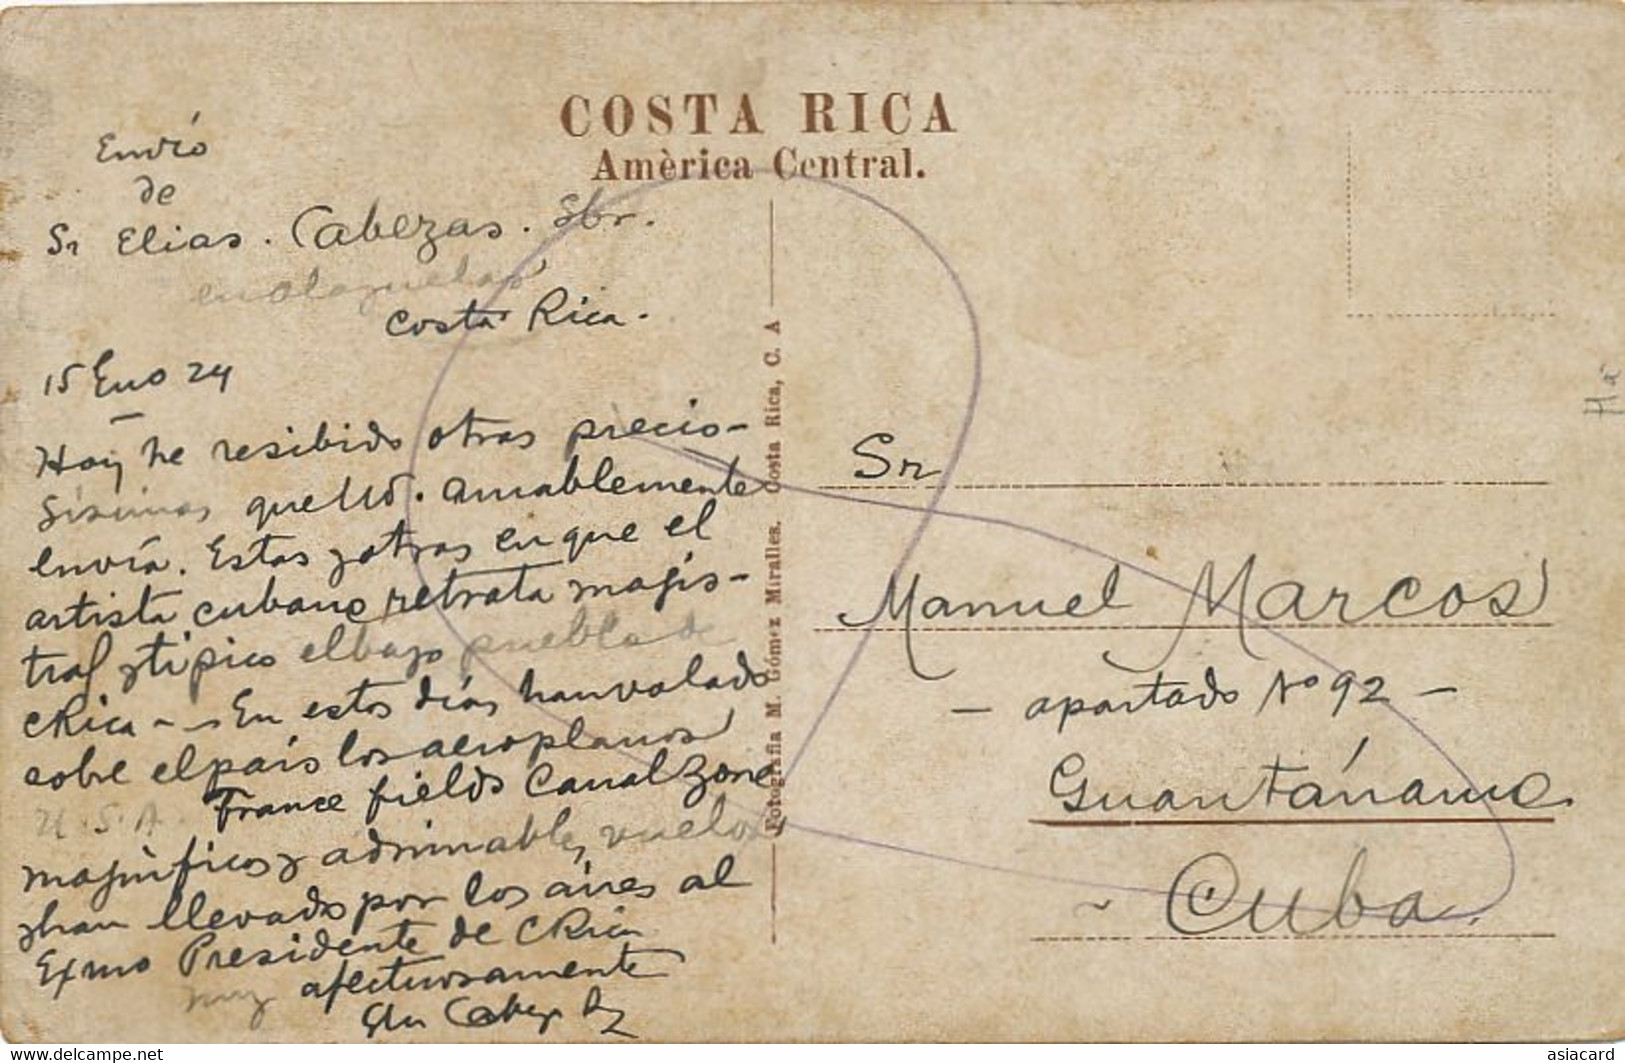 COSTA RICA
Amèrica Central.
Envío
de
Sr Elias. Cabezas. Sbr.
Costa Rica.
15 Eno 24
Hoy he resibido otras precio-
sisimas que Ud. amablemente
envía. Estas y otras en que el
artista cubano retrata magis-
tral y tipico el bajo pueblo de
CRica - - En estos días han volado
sobre el país los aeroplanos
U.S.A. France fields Canal Zone
magníficos y admirables vuelos
y han llevado por los aíres al
Exmo Presidente de CRica
muy afectuosamente
Fotografía M. Gómez Miralles. Costa Rica, C. A
Sr
Manuel Marcos
- apartado No 92 -
Guantánamo.
~ Cuba.
delcampe.net
asiacard